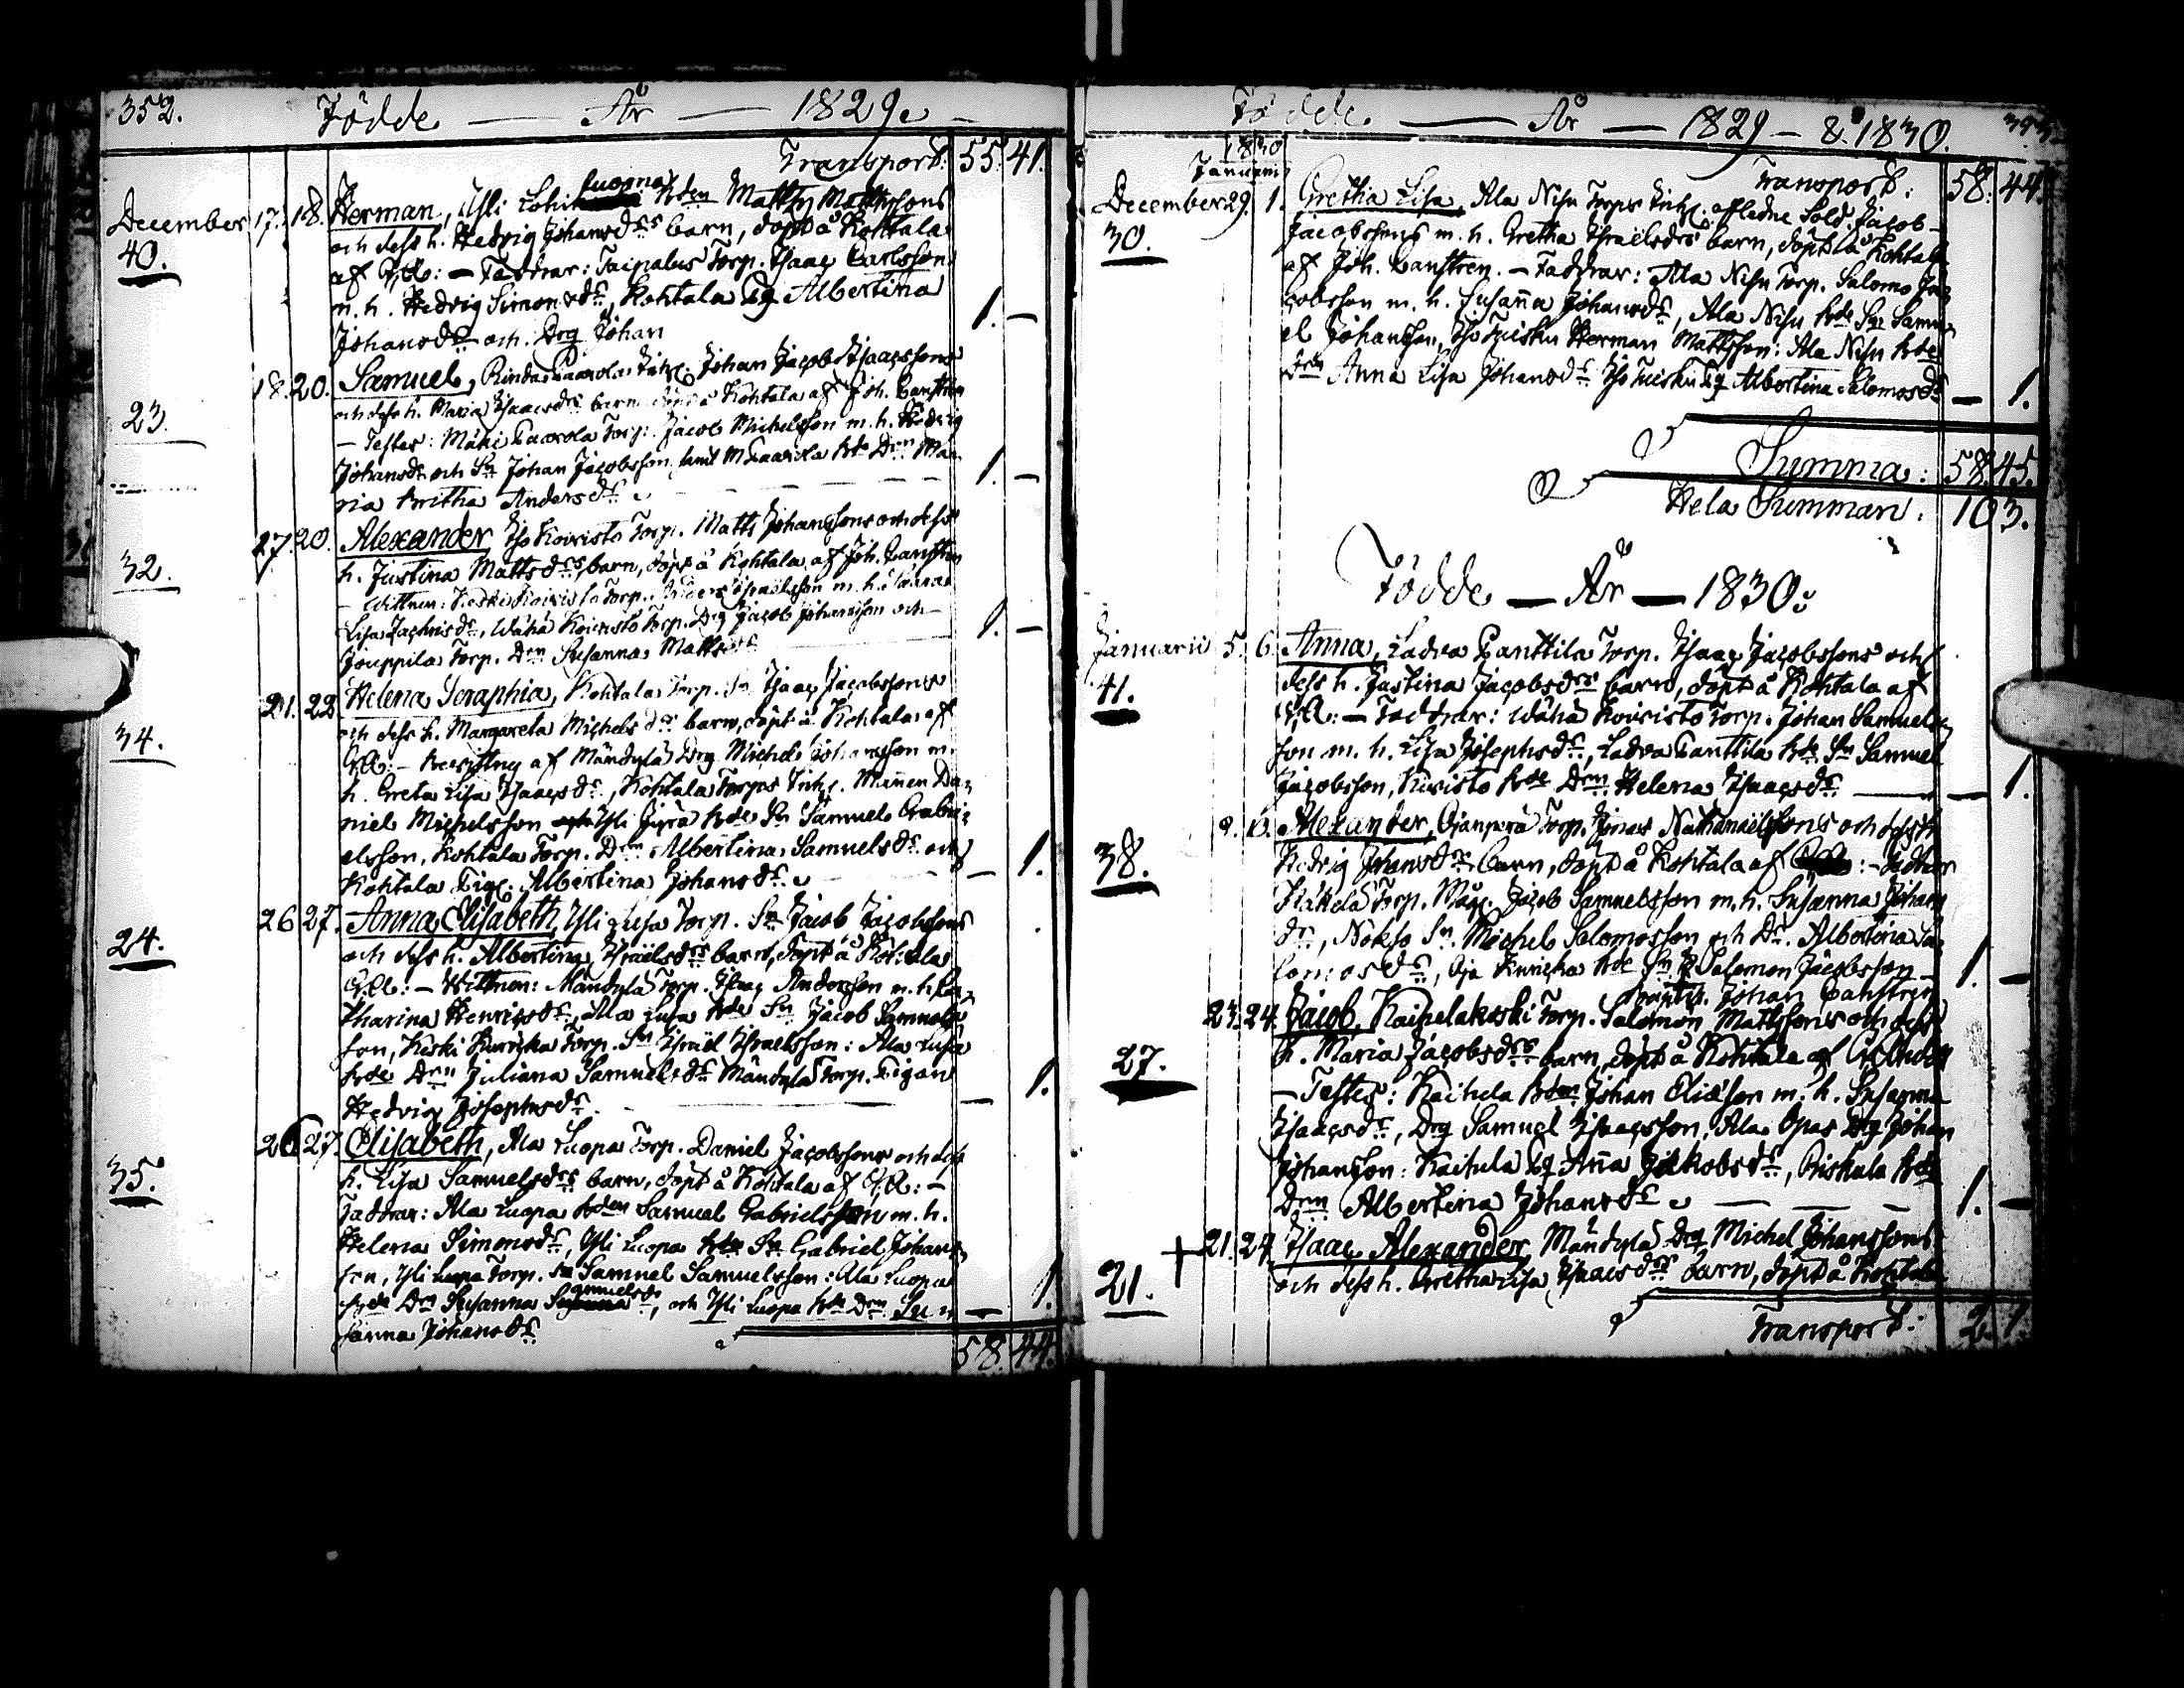 352. Födde — År — 1829.
Transport: 55. 41.
December 17. 18. Herman, Yli Lohi luoma Bden Matts Mattssons
40. och dess h. Hedvig Johansdrs barn, döpt å Kohtala
af — Faddrar: Taipalus Torp. Isaac Carlsson
m. h. Hedvig Simonsdr, Kohtala Pig Albertina
Johansdr och Drg Johan 1. —
18. 20. Samuel, Rinda Paavola Inh. Johan Jacob Isaacssons
23. och dess h. Maria Isaacsdrs barn döpt å Kohtala af Joh. Canstren
— Testes: Mäki Paavola Torp. Jacob Michelsson m. h. Hedvig
Johansdr och Sn Johan Jacobsson, samt Paavola Bde Drn Ma-
ria Britha Andersdr 1. —
27. 20. Alexander Koivisto Torp. Matts Johanssons och dess
32. h. Justina Mattsdrs barn, döpt å Kohtala af Joh. Canstren
— Wittnen: Keski Koivisto Torp. Anders Israelsson m. h.
Lisa Zachrisdr, Wähä Koivisto Torp. Drg Jacob Johansson och
Jouppila Torp. Drn Susanna Mattsdr 1. —
21. 22 Helena Seraphia, Kohtala Torp. Sn Isaac Jacobssons
34. och dess h. Margareta Michelsdrs barn, döpt å Kohtala af
— Bevistney af Mändylä Drg Michel Johansson m.
h. Greta Lisa Isaacsdr, Kohtala Torps Inh. Mannen Da-
niel Michelsson Yli Jyrä Bde Sn Samuel Gabri-
elsson, Kohtala Torp. Drn Albertina Samuelsdr och
Kohtala Pig. Albertina Johansdr — 1.
26 27. Anna Elisabeth, Yli Lusa Torp. Sn Jacob Jacobssons
24. och dess h. Albertina Israelsdrs barn, döpt å Kohtala
— Wittnen: Mändylä Torp. Isaac Andersson m. h. Ca-
tharina Henricsdr, Ala Lusa Bde Sn Jacob Samuels-
son, Keski Kurikka Torp. Sn Israel Israelsson: Ala Lusa
Bde Drn Juliana Samuelsdr Mändylä Torp. Pigan
Hedvig Josephsdr — 1.
26 27. Elisabeth, Ala Luopa Torp. Daniel Jacobssons och dess
35. h. Lisa Samuelsdrs barn, döpt å Kohtala af
Faddrar: Ala Luopa Bden Samuel Gabrielsson m. h.
Helena Simonsdr, Yli Luopa Bde Sn Gabriel Johans-
son, Yli Luopa Torp. Sn Samuel Samuelsson: Ala Luopa
Bde Drn Susanna Samuelsdr, och Yli Luopa Bde Drn Su-
sanna Johansdr — 1.
58. 44.
Födde. — År — 1829 — & 1830.
1830
Januarii
Transport: 58. 44.
December 29. 1. Gretha Lisa, Ala Nisu Torps Inh. afledne Sold. Jacob
30. Jacobssons m. h. Gretha Israelsdrs barn, döpt å Kohtala
af Joh. Canstren. — Faddrar: Ala Nisu Torp. Salomo Ja-
cobsson m. h. Susanna Johansdr, Ala Nisu Bde Sn Samu-
el Johansson, Iso Tuisku Herman Mattsson: Ala Nisu Bde
Drn Anna Lisa Johansdr. Iso Tuisku Pig Albertina Salomosdr — 1.
Summa: 58. 45.
Hela Summan. 103.
Födde — År — 1830.
Januarii 5. 6. Anna, Ladva Panttila Torp. Isaac Jacobssons och
41. dess h. Justina Jacobsdrs barn, döpt å Kohtala af
— Faddrar: Wähä Koivisto Torp. Johan Samuels-
son m. h. Lisa Josephsdr, Ladva Panttila Bde Sn Samuel
Jacobsson, Koivisto Bde Drn Helena Isaacsdr — 1.
Alexander, Ojanperä Torp. Jonas Nathanaelssons och dess h.
38. Hedvig Johansdrs barn, döpt å Kohtala af
Käkelä Torp. Måg. Jacob Samuelsson m. h. Susanna Johans
dr, Nokso Sn. Michel Salomosson och Dr. Albertina Sa-
lomosdr, Oja Kurikka Bde Sn Salomon Jacobsson 1. —
Johan Canstren
23. 24. Jacob, Kaihelakoski Torp. Salomon Mattssons och dess
27. h. Maria Jacobsdrs barn, döpt å Kohtala af
— Testes: Kaihela Bden Johan Eliasson m. h. Susanna
Isaacsdr, Drg Samuel Isaacsson, Ala Opas Drg Johan
Johansson: Kaihela Pg Anna Jakobsdr, Riskula Bde
Drn Albertina Johansdr 1. —
21. 24. Isaac Alexander, Mändylä Drg Michel Johanssons
21. och dess h. Gretha Lisa Isaacsdrs barn, döpt å Kohtala
Transport: 2. 1